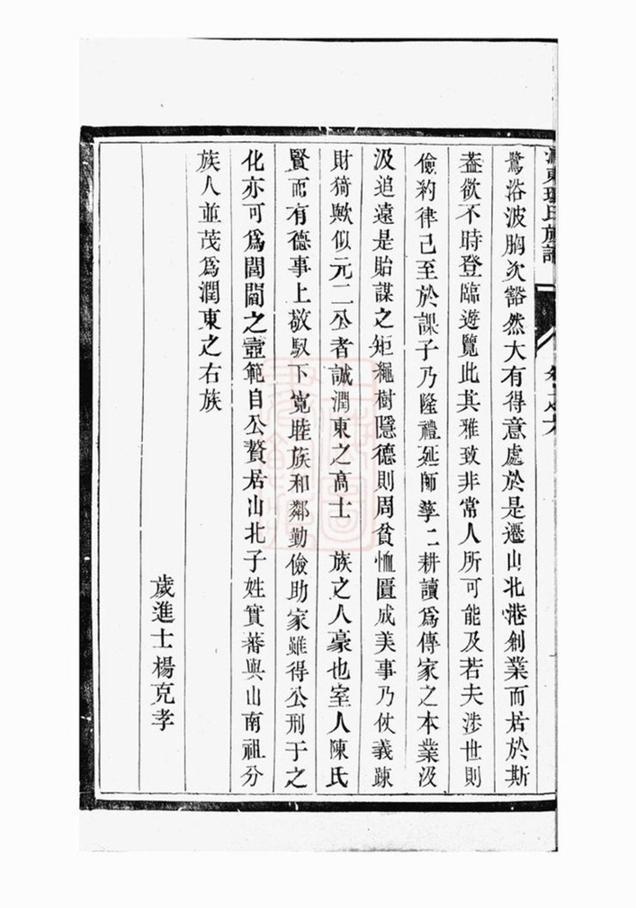 驚浴波胸次豁然大有得意處於是遷山北港創業而居於斯
葢欲不時登臨遊覽此其雅致非常人所可能及若夫涉世則
儉約律己至於課子乃隆禮延師孳二耕讀爲傳家之本業汲
汲追遠是貽謀之矩繩樹隱德則周貧恤匱成美事乃仗義踈
財猗歟似元二公者誠潤東之高士 族之人豪也室人陳氏
賢而有德事上敬馭下寬睦族和鄰勤儉助家雖得公刑于之
化亦可爲閨閫之壼範自公贅居山北子姓實蕃與山南祖分
族人並茂爲潤東之右族
歲進士楊克孝
東 氏族譜